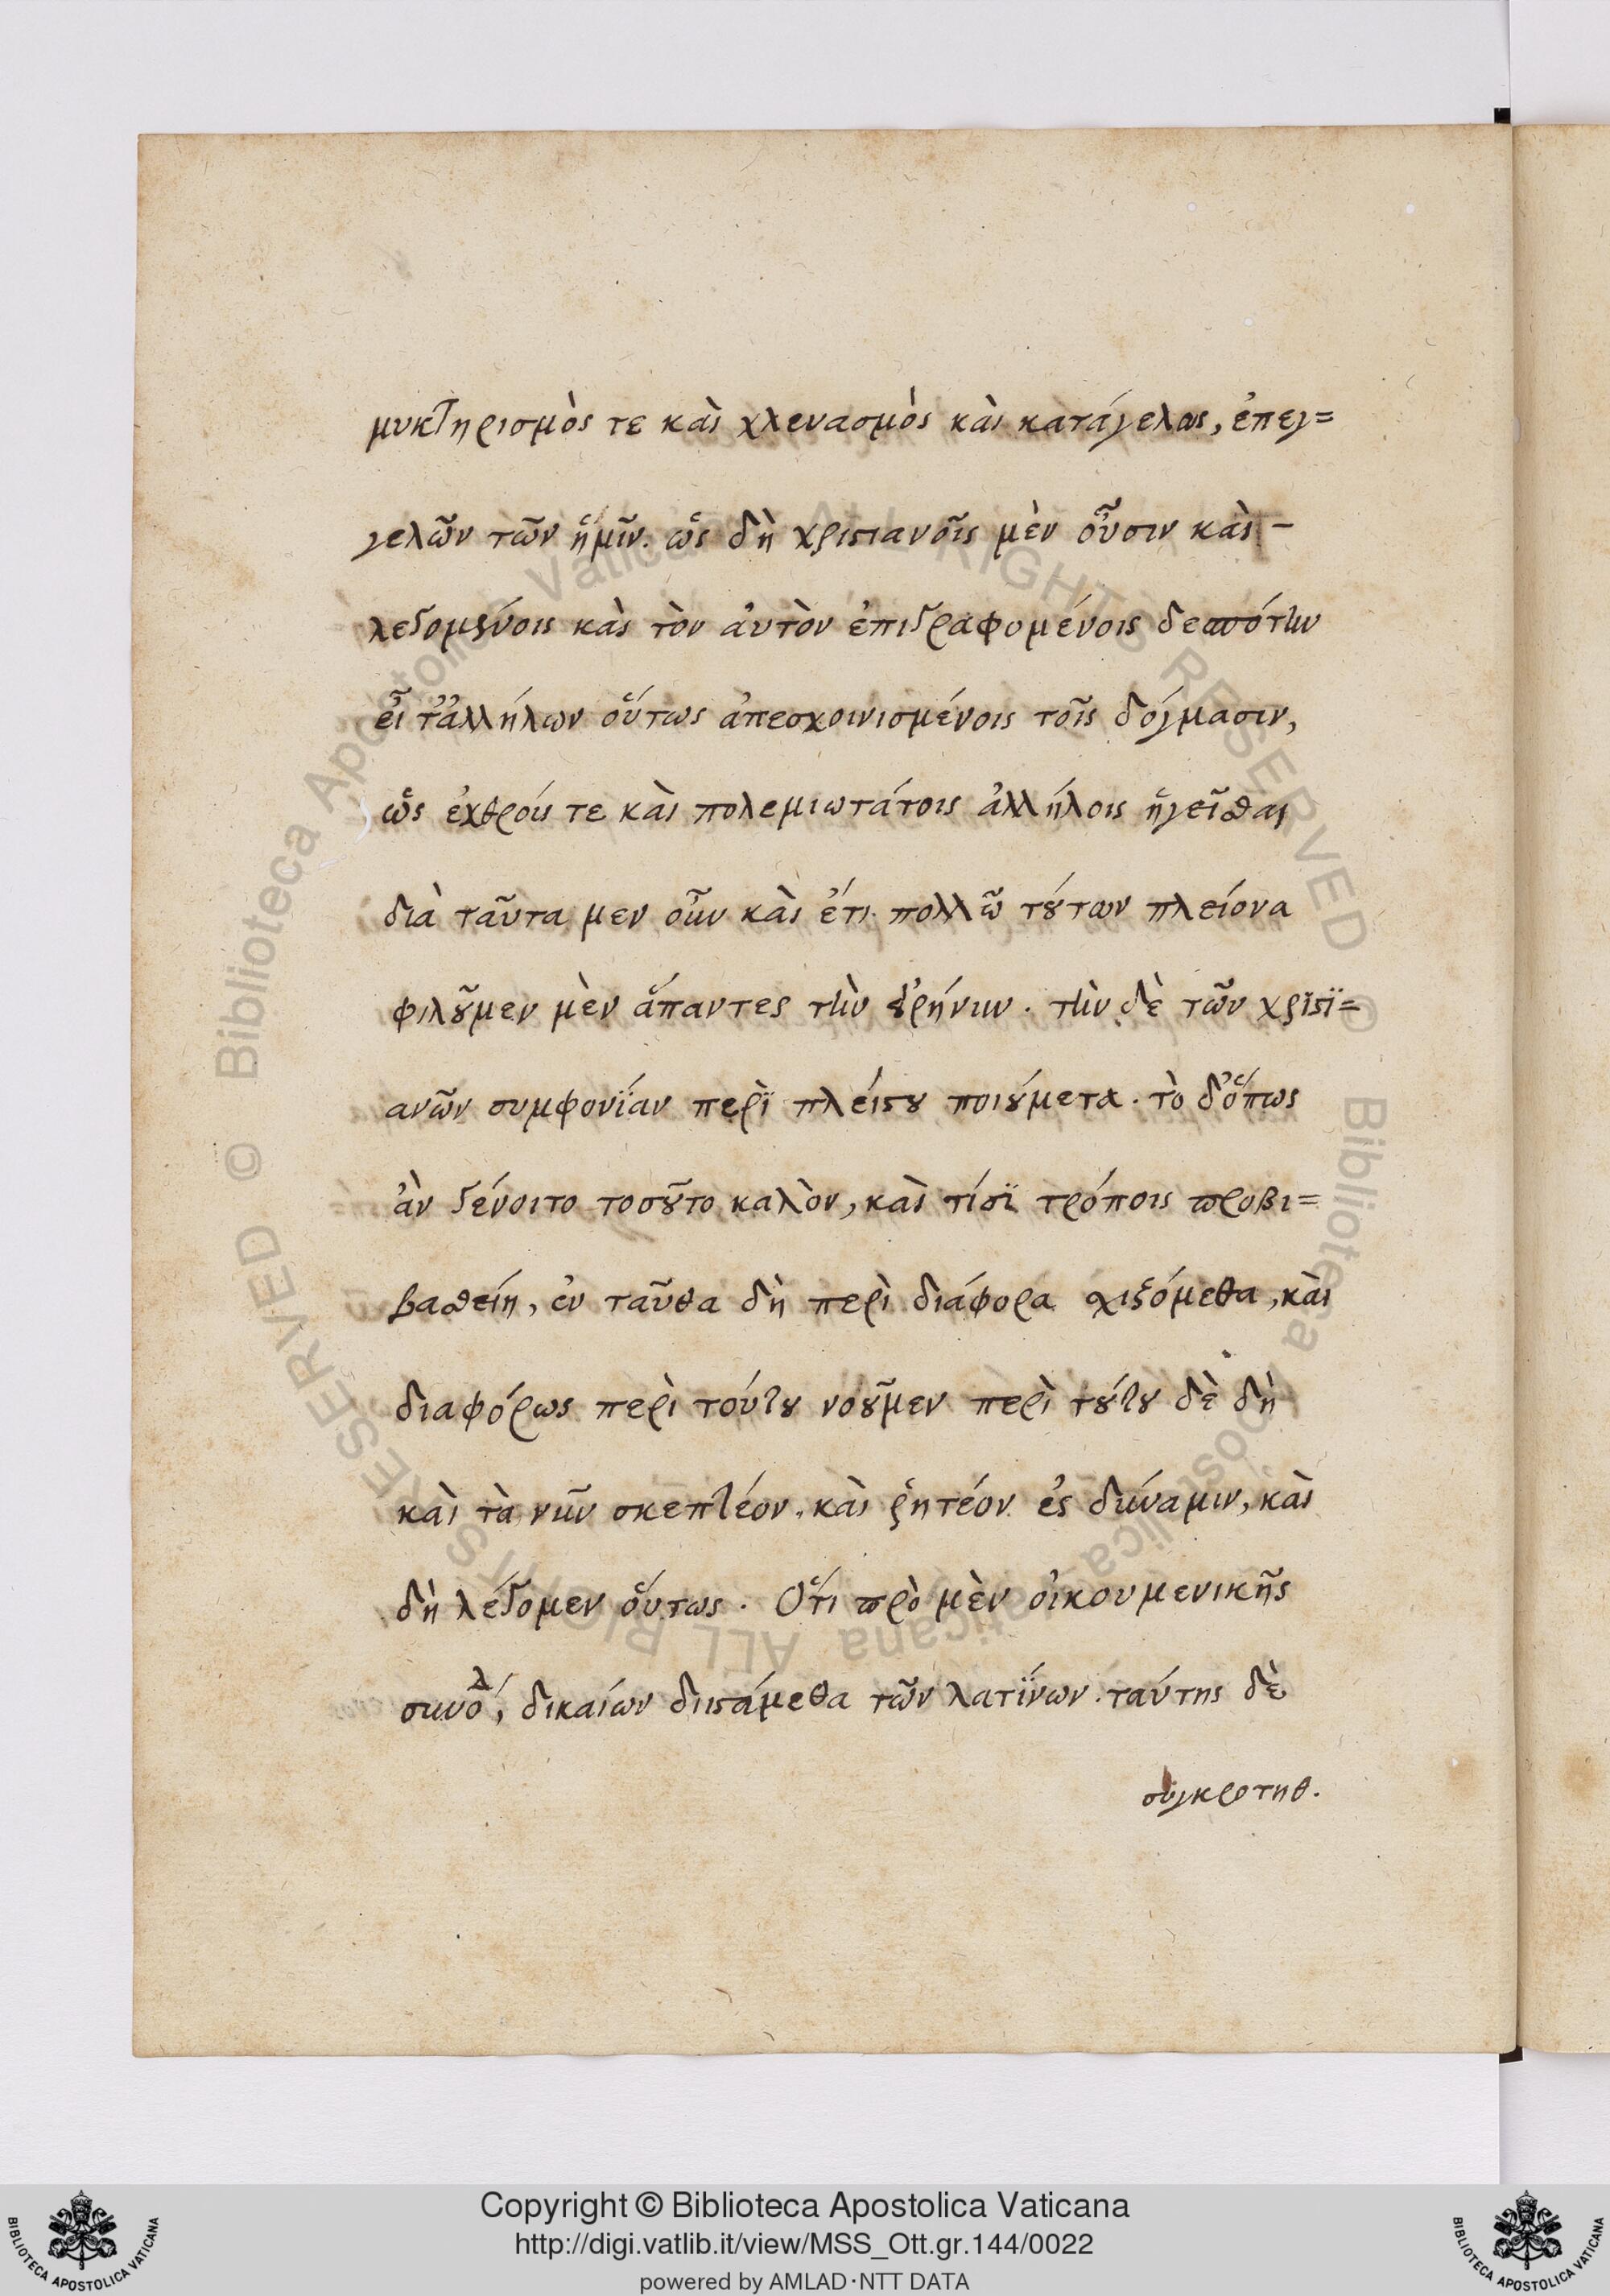 μυκτηρισμὸς τε καὶ χλευασμὸς καὶ κατάγελως, ἐπεγ=
γελῶν τῶν ἡμῖν. ὡς δὴ χριστιανοῖς μὲν οὖσιν καὶ -
λεγομένοις καὶ τὸν ἀυτὸν ἐπιγραφομένοις δεσπότην
εἶ τ᾽ἀλλήλων οὕτως ἀπεσχοινισμένοις τοῖς δόγμασιν,
ὡς ἐχθροίς τε καὶ πολεμιωτάτοις ἀλλήλοις ἡγεῖσθαι
διὰ ταῦτα μεν οὖν καὶ ἔτι πολλῶ τούτων πλείονα
φιλοῦμεν μὲν ἅπαντες τὴν εἰρήνην. τὴν δὲ τῶν χρϊστϊ=
ανῶν συμφονΐαν περῒ πλείστου ποιούμετα. τὸ δ᾽ὅπως
ἀν γένοιτο τοσοῦτο καλὸν, καὶ τίσϊ τρόποις προβι=
βασθείη, ἐν ταῦθα δὴ περὶ διάφορα σχιζόμεθα, καὶ
διαφόρως περὶ τούτου νοοῦμεν περὶ τούτου δὲ δὴ
καὶ τὰ νῦν σκεπτέον. καὶ ῥητέον ἐς δύναμιν, καὶ
δὴ λέγομεν οὕτως. Ὅτι πρὸ μὲν οἰκουμενικῆς
συνόδ, δικαίων διιστάμεθα τῶν λατΐνων. ταύτης δὲ
συγκροτηθ.
Copyright © Biblioteca Apostolica Vaticana
http://digi.vatlib.it/view/MSS_Ott.gr.144/0022
powered by AMLAD·NTT DATA
BIBLIOTECA APOSTOLICA VATICANA
BIBLIOTECA APOSTOLICA VATICANA
© Biblioteca Apostolica Vaticana ALL RIGHTS RESERVED
© Biblioteca Apostolica Vaticana ALL RIGHTS RESERVED